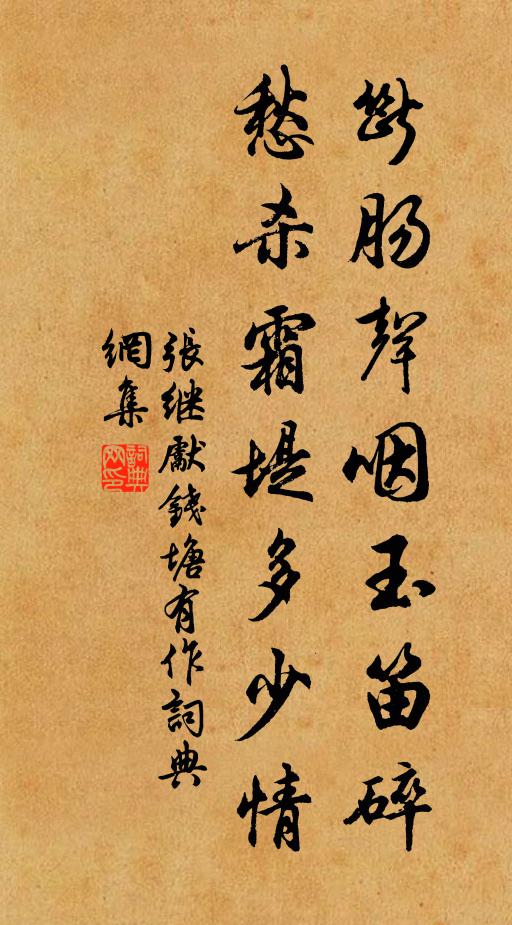 斷肠聲咽玉笛碎
愁杀霜堤多少情
張继獻錢塘有作詞典
網集
詞典
網印